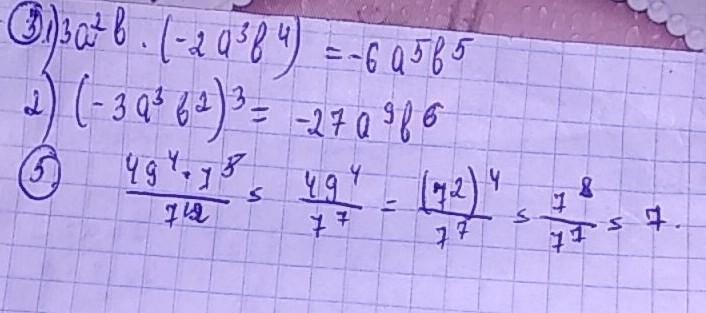 ③ 1) 3a²b · (-2a³b⁴) = -6a⁵b⁵
2) (-3a³b²)³ = -27a⁹b⁶
⑤ 49⁴·7⁵/7¹² = 49⁴/7⁷ = (7²)⁴/7⁷ = 7⁸/7⁷ = 7.